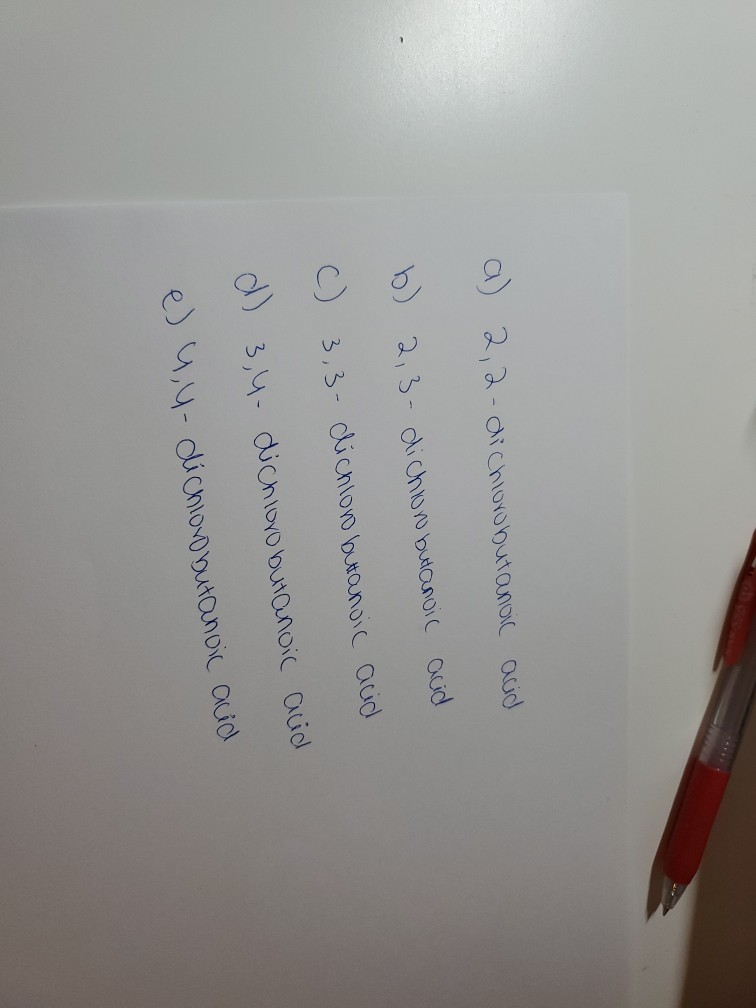 a) 2,2-dichlorobutanoic acid
b) 2,3-dichlorobutanoic acid
c) 3,3-dichlorobutanoic acid
d) 3,4-dichlorobutanoic acid
e) 4,4-dichlorobutanoic acid